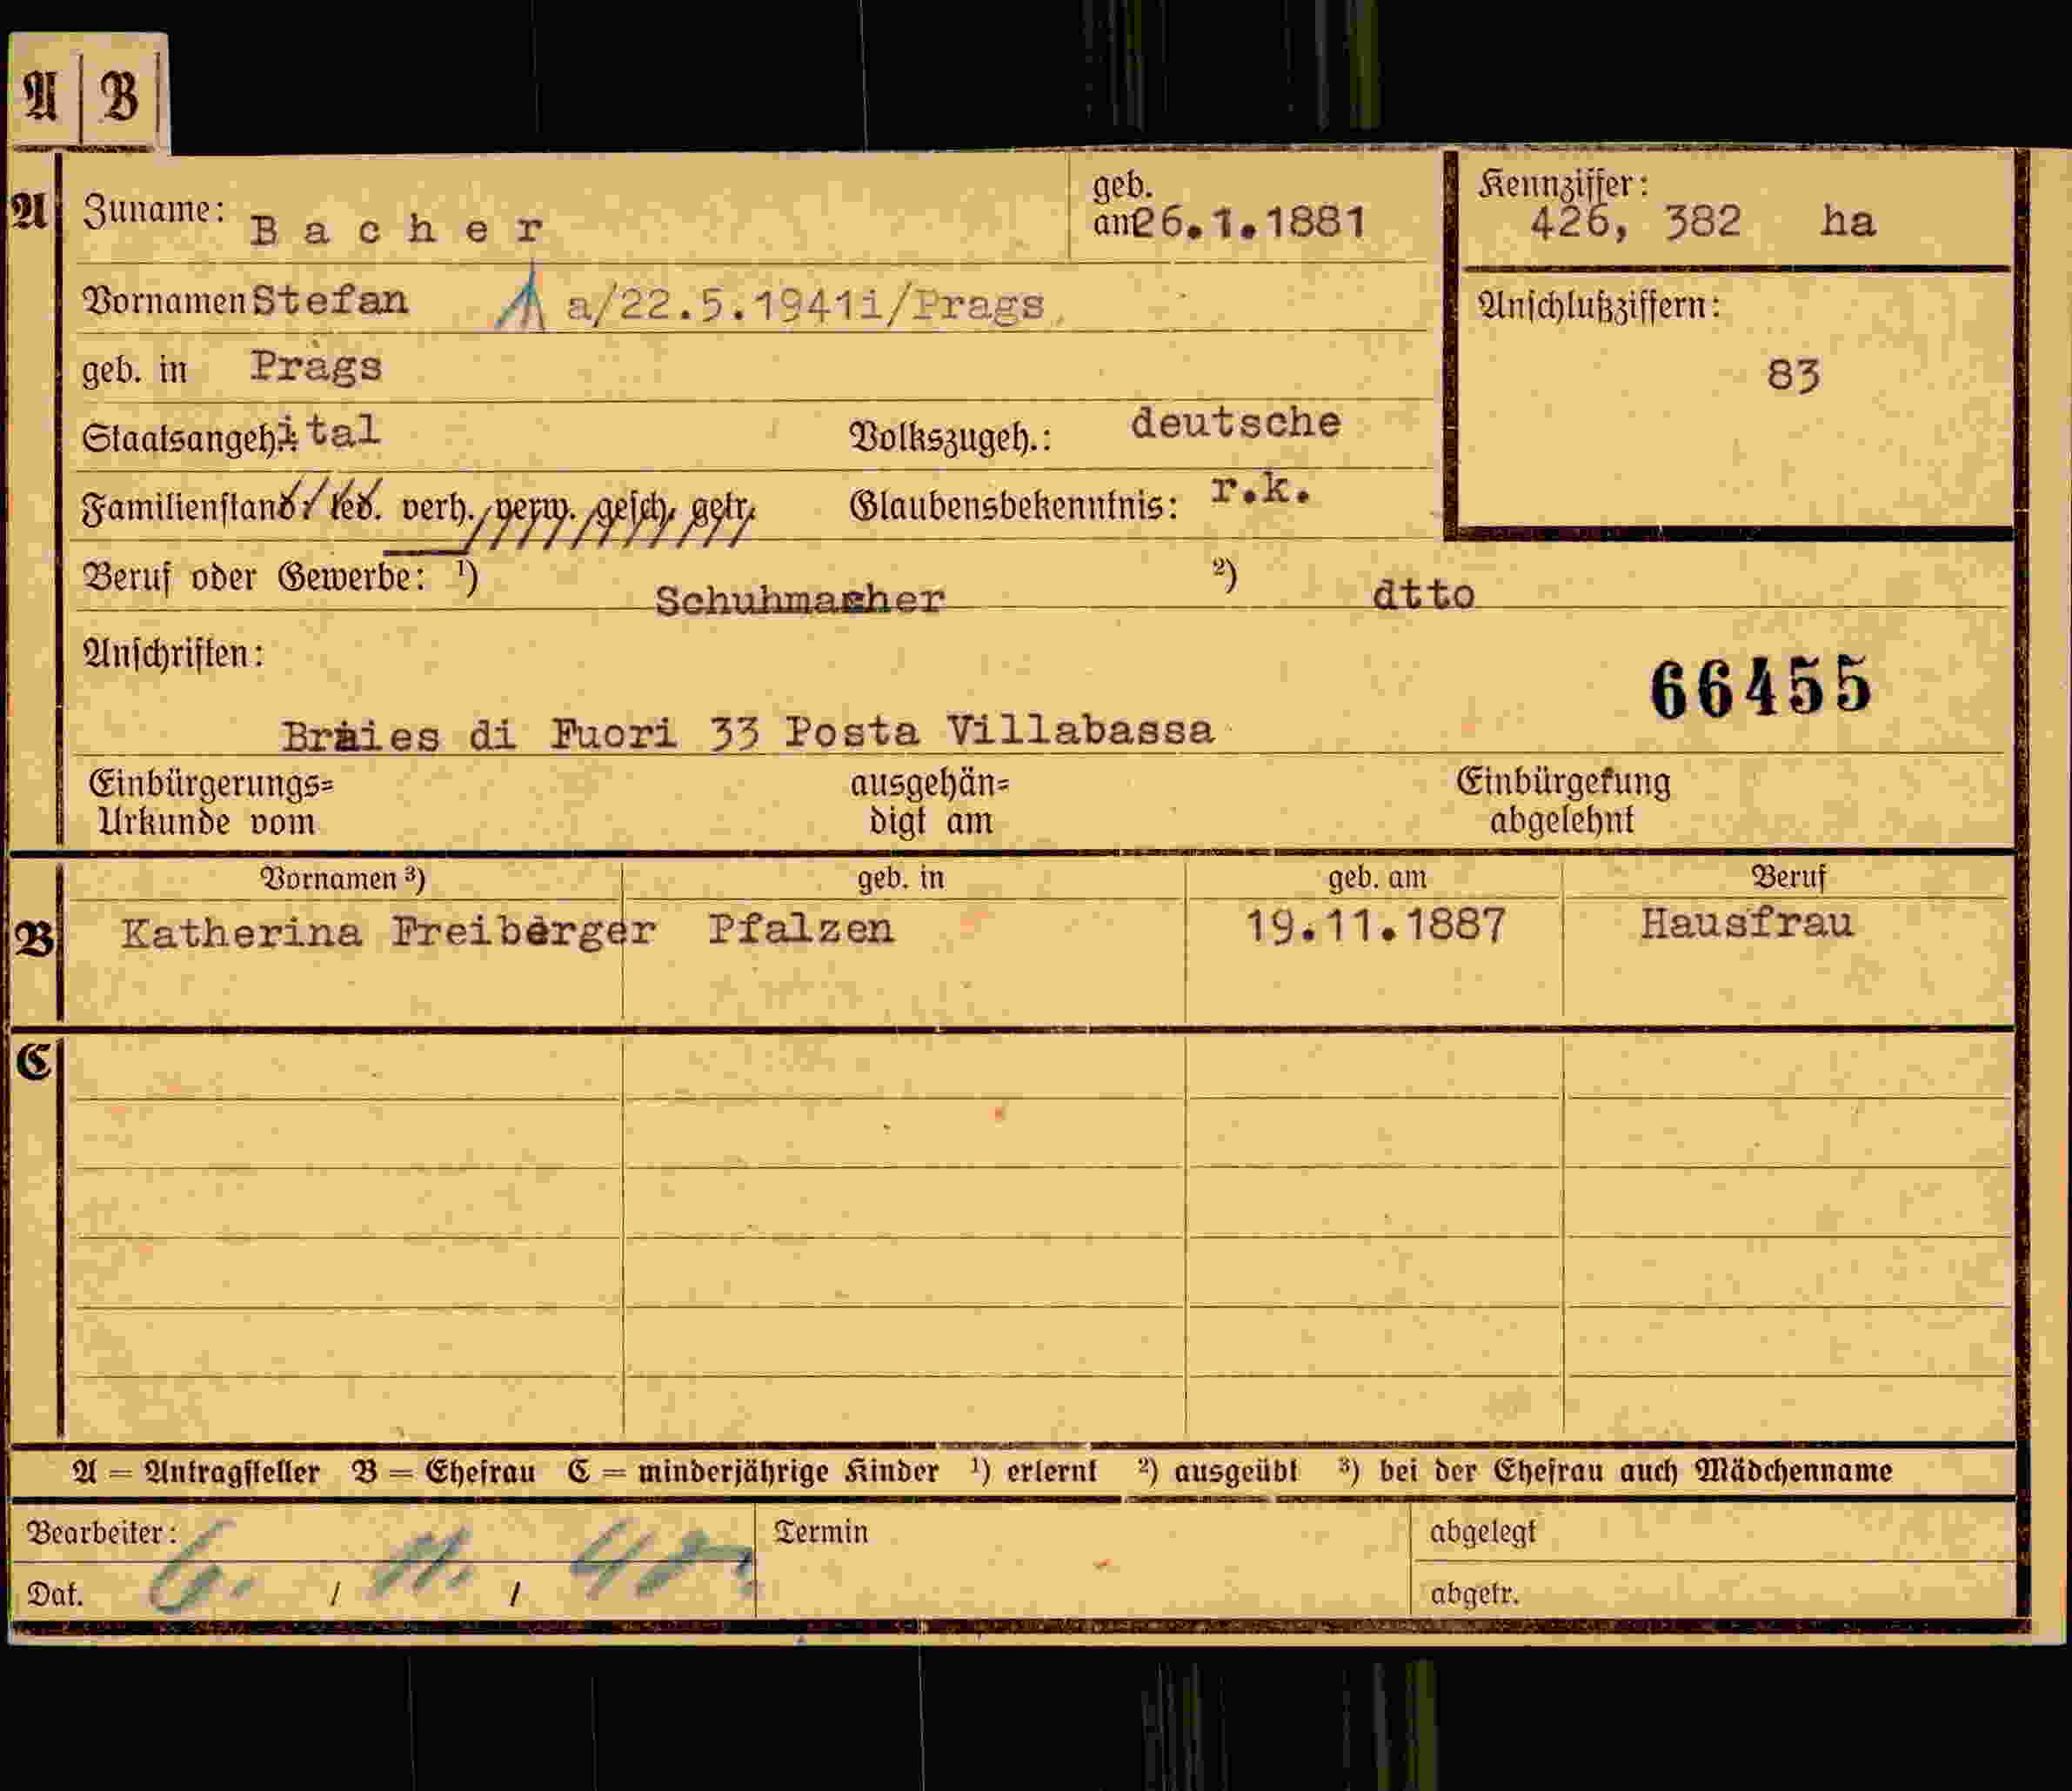 A B
A Zuname: Bacher geb. am 26.1.1881 Kennziffer: 426, 382 ha
Vornamen Stefan a/22.5.1941i/Prags Anschlußziffern:
geb. in Prags 83
Staatsangeh. ital Volkszugeh.: deutsche
Familienstand: led. verh. verw. gesch. getr. Glaubensbekenntnis: r.k.
Beruf oder Gewerbe: 1) Schuhmacher 2) dtto
Anschriften:
66455
Braies di Fuori 33 Posta Villabassa
Einbürgerungs= ausgehän= Einbürgerung
Urkunde vom digt am abgelehnt
Vornamen 3) geb. in geb. am Beruf
B Katherina Freiberger Pfalzen 19.11.1887 Hausfrau
C
A = Antragsteller B = Ehefrau C = minderjährige Kinder 1) erlernt 2) ausgeübt 3) bei der Ehefrau auch Mädchenname
Bearbeiter: Termin abgelegt
Dat. 6. / 11. / abgetr.